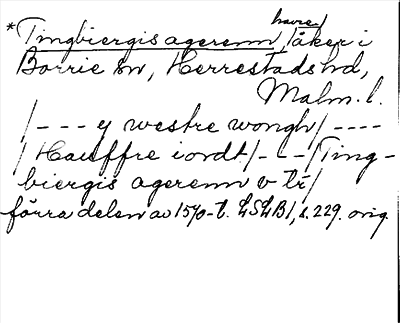 havre/
*Tingbiergis agerenn, /åker i
Borrie sn, Herrestads hd,
Malm. l.
/--- y westre wongh/ ----
/ Hauffre iordt /---/ Ting-
biergis agerenn v tr/
förra delen av 1570-t. LSLB1, s. 229. orig.